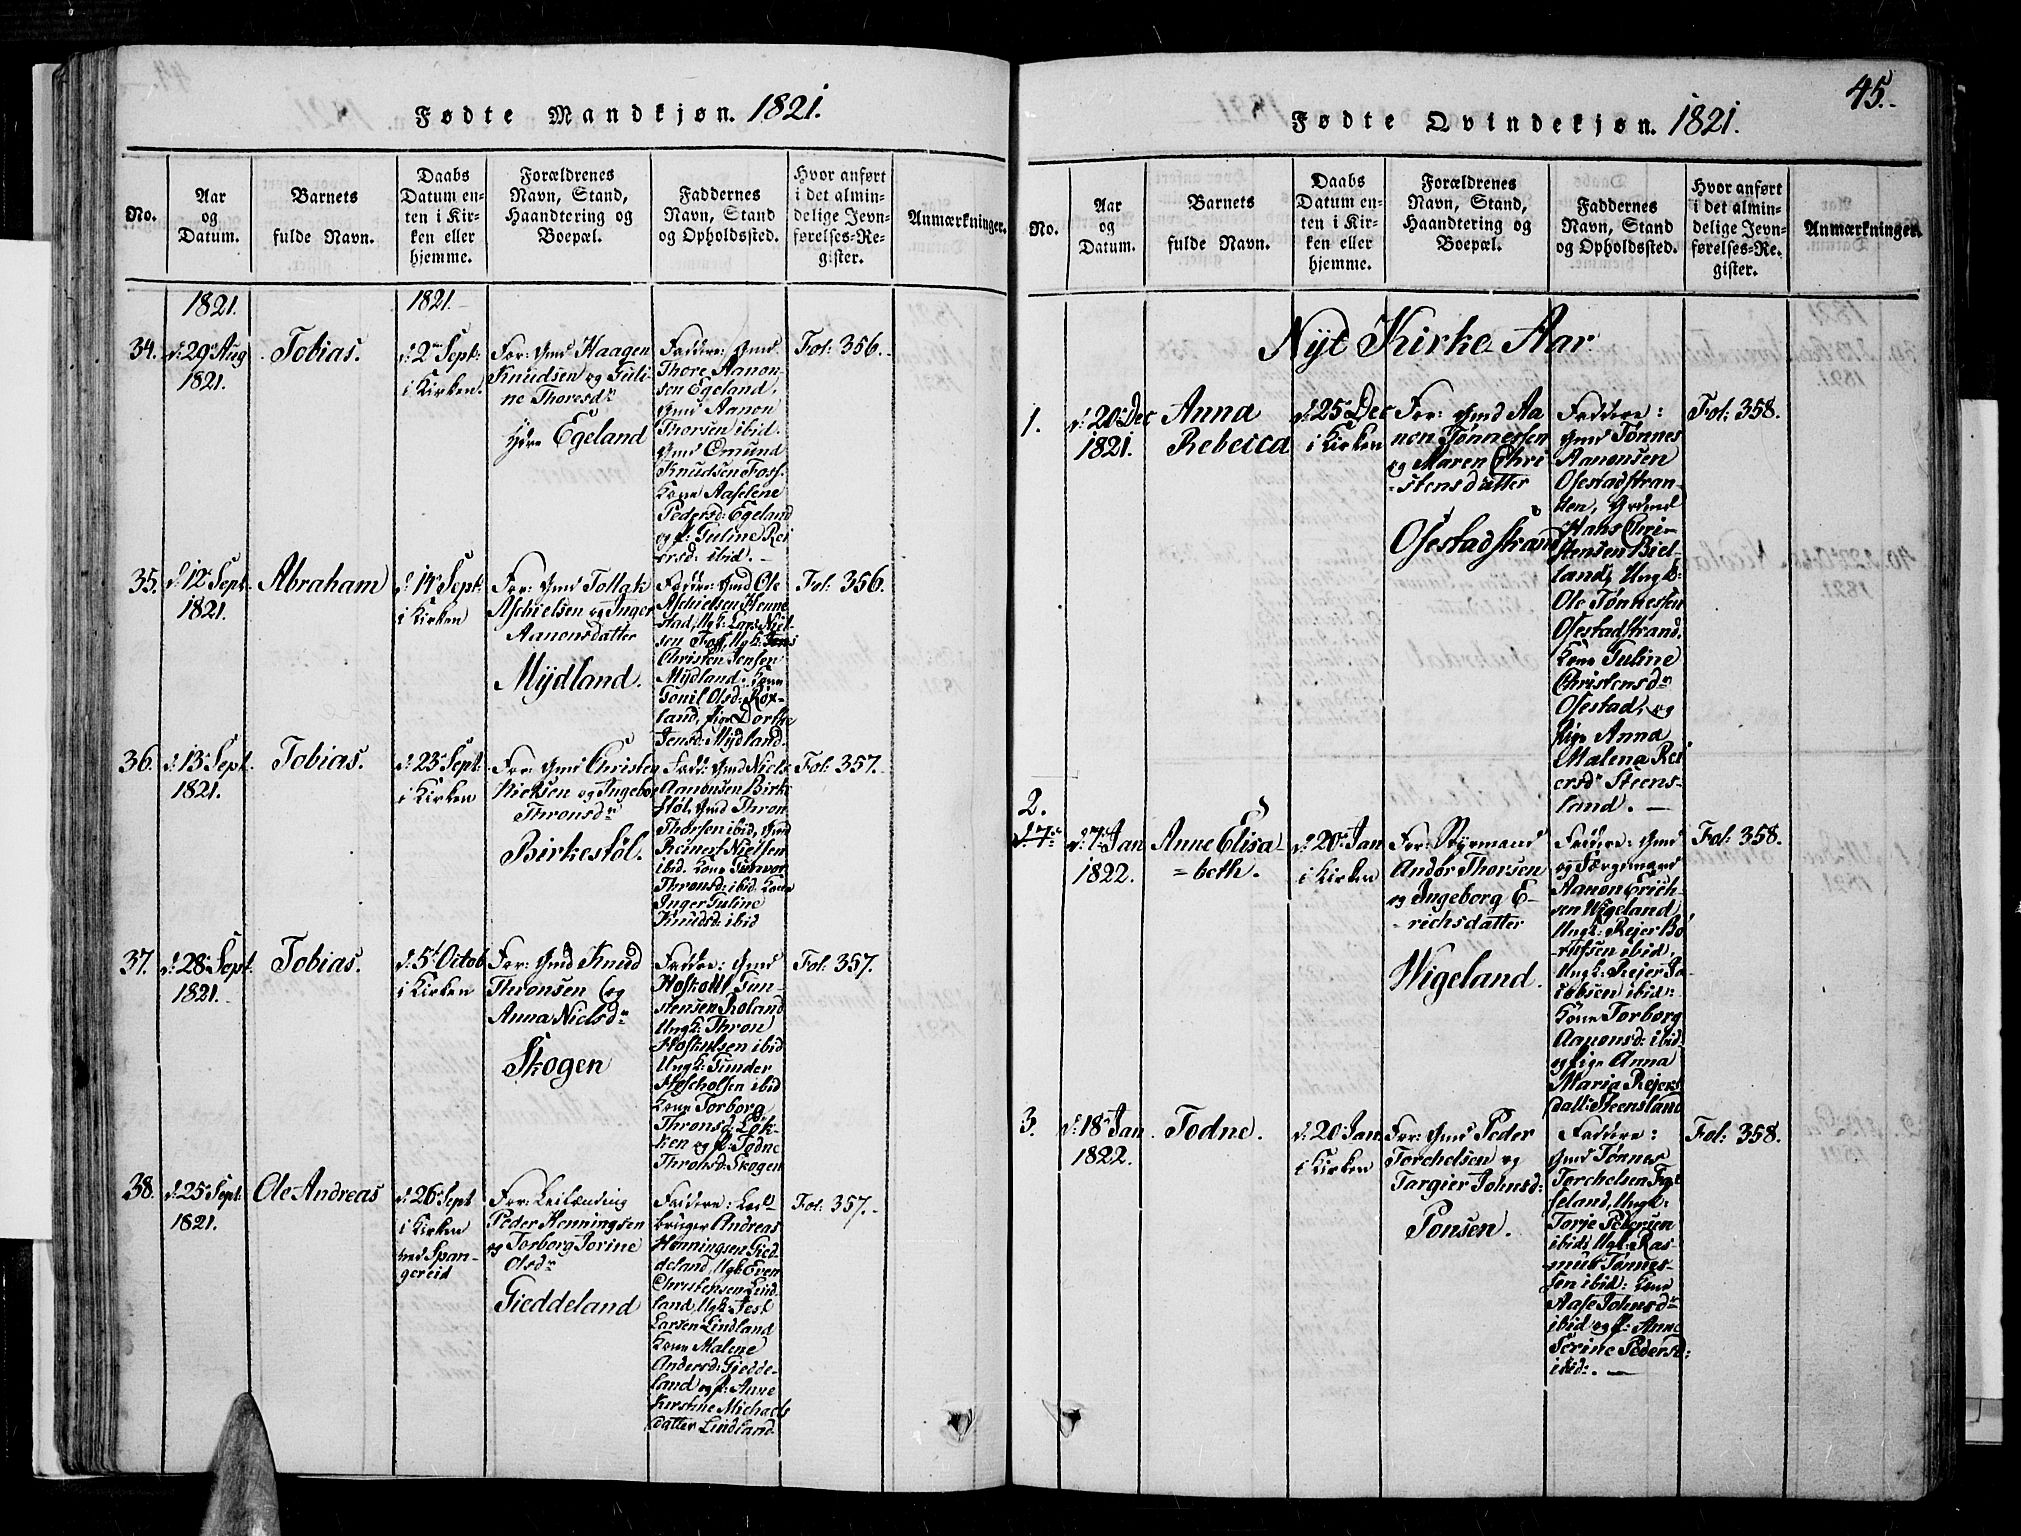 Fødte Mandkjøn. 1821.
No.
Aar
og
Datum.
Barnets
fulde Navn.
Daabs
Datum en-
ten i Kir-
ken eller
hjemme.
Forældrenes
Navn, Stand,
Haandtering og
Boepæl.
Faddernes
Navn, Stand
og Opholdssted.
Hvor anført
i det almin-
delige Jevn-
førelses-Re-
gister.
Anmærkninger.
34.
1821.
d: 29 Aug
1821.
Tobias.
1821.
d: 2 Sept:
i Kirken.
For: Gmd Haagen
Knudsen og Guli-
ne Thoresdr
Egeland
Faddere: Gmd
Thore Aanon-
sen Egeland,
Gmd Aanon
Thorsen ibid.
Gmd Omund
Knudsen Foss.
Kone Aaselene
Pedersd: Egeland
og p: Guline Rei
ersd: ibid.
Fol: 356.
35.
d: 12 Sept.
1821.
Abraham
d: 14 Sept:
i Kirken
For: Gmd Tollak
Aschielsen og Inger
Aanonsdatter
Mydland.
Faddre: Gmd Ole
Aschielsen Henne
stad, Ugk: Lars Niel-
sen Foss, Ugk: Jens
Christen Jensen
Mydland. Kone
Tonil Olsd: Røx-
land, pige Dorthe
Jensd: Mydland.
Fol: 356.
36.
d: 13 Sept.
1821.
Tobias.
d: 23 Sept:
i Kirken
For: Gmd Christen
Nielsen og Ingebor
Thronsdr
Birkestøl.
Fadd: Gmd Niels
Aanonsen Birke
støl, Gmd Thron
Thorsen ibid, Gmd
Reinert Nielsen
ibid. Kone Gunvor
Thronsd: ibid. Kone
Inger Guline
Knudsd: ibid
Fol: 357.
37.
d: 28 Sept.
1821.
Tobias.
d: 5 Octob
i Kirken
For: Gmd Knud
Thronsen og
Anna Nielsdr
Skogen
Faddere: Gmd
Hoskold Gun-
stensen Roland
Ungk: Thron
Hoskulsen ibid
Ungk: Gunder
Hoscholsen ibid
Kone Torborg
Thronsd: Løk-
ken og p: Todne
Thronsd: Skogen
Fol: 357.
38.
d: 25 Sept.
1821.
Ole Andreas
d: 26 Sept
i Kirken
ved Span-
gereid
For: Leilænding
Peder Henningsen
og Torborg Jorine
Olsdr
Gieddeland
Faddere:
bruger Andreas
Henningsen Gied-
deland, Ugk: Even
Christensen Lind
land, Ugk:
Larsen Lindland
Kone Malene
Andersd: Giedde-
land og p: Anne
Kirstine Michaels
datter Lindland.
Fol: 357.
45.
Fødte Qvindekjøn. 1821.
No.
Aar
og
Datum.
Barnets
fulde Navn.
Daabs
Datum en-
ten i Kir-
ken eller
hjemme.
Forældrenes
Navn, Stand,
Haandtering og
Boepæl.
Faddernes
Navn, Stand
og Opholdssted.
Hvor anført
i det almin-
delige Jevn-
førelses-Re-
gister.
Anmærkninger.
Nyt Kirke Aar
1.
d: 20 Dec
1821.
Anna
Rebecca
d: 25 Dec
i Kirken
For: Gmd Aa
non Tønnessen
og Maren Chri
stensdatter
Osestadstrand
Faddere:
Gmd Tønnes
Aanonsen
Osestadstran-
den, Grmd
Hans Chri-
stensen Biel-
land, Ungk:
Ole Tønnessen
Osestadstrand.
Kone Guline
Christensdr
Osestad, og
pige Anna
Malena Rei
ersdr Steens-
land.
Fol: 358.
2.
d: 7
d: 7 Jan
1822.
Anne Elisa
beth.
d: 20 Jan
i Kirken
For: Styrmand
Andor Thorsen
og Ingeborg E-
richsdatter
Wigeland.
Faddere: Gmd
og Færgemand
Aanon Erich-
sen Wigeland
Ungk: Rejer Bo
ibid,
Ungk: Rejer Ja
cobsen ibid:
Kone Torborg
Aanonsd: ibid
og pige Anna
Maria Rejers
datt: Steensland
Fol: 358.
3.
d: 18 Jan
1822.
Todne.
d: 20 Jan
i Kirken
For: Gmd Peder
Torchelsen og
Targier Johnsd:
Ponsen.
Faddere:
Gmd Tønnes
Torchelsen Fog
feland, Ungk:
Torje Pedersen
ibid, Ugk: Ras-
mus Tønnes-
sen ibid: Kone
Aase Johnsdr
ibid og p: Anne
Serine Pedersd:
ibid:
Fol: 358.